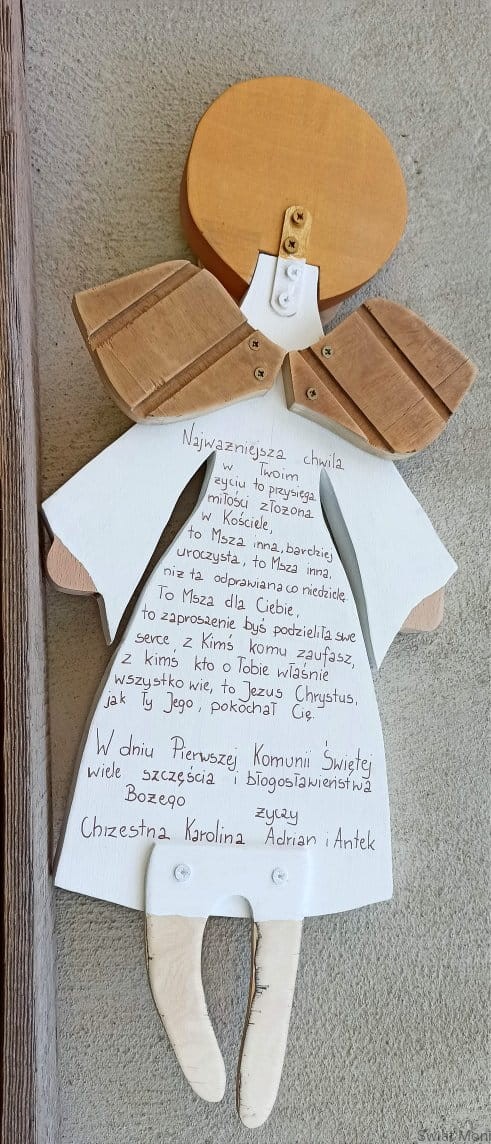 Najważniejsza chwila
w Twoim
życiu to przysięga
miłości złożona
w Kościele,
to Msza inna, bardziej
uroczysta, to Msza inna,
niż ta odprawiana co niedzielę.
To Msza dla Ciebie,
to zaproszenie byś podzieliła swe
serce, z Kimś komu zaufasz,
z kimś kto o Tobie właśnie
wszystko wie, to Jezus Chrystus,
jak Ty Jego, pokochał Cię.
W dniu Pierwszej Komunii Świętej
wiele szczęścia i błogosławieństwa
Bożego
życzy
Chrzestna Karolina Adrian i Antek